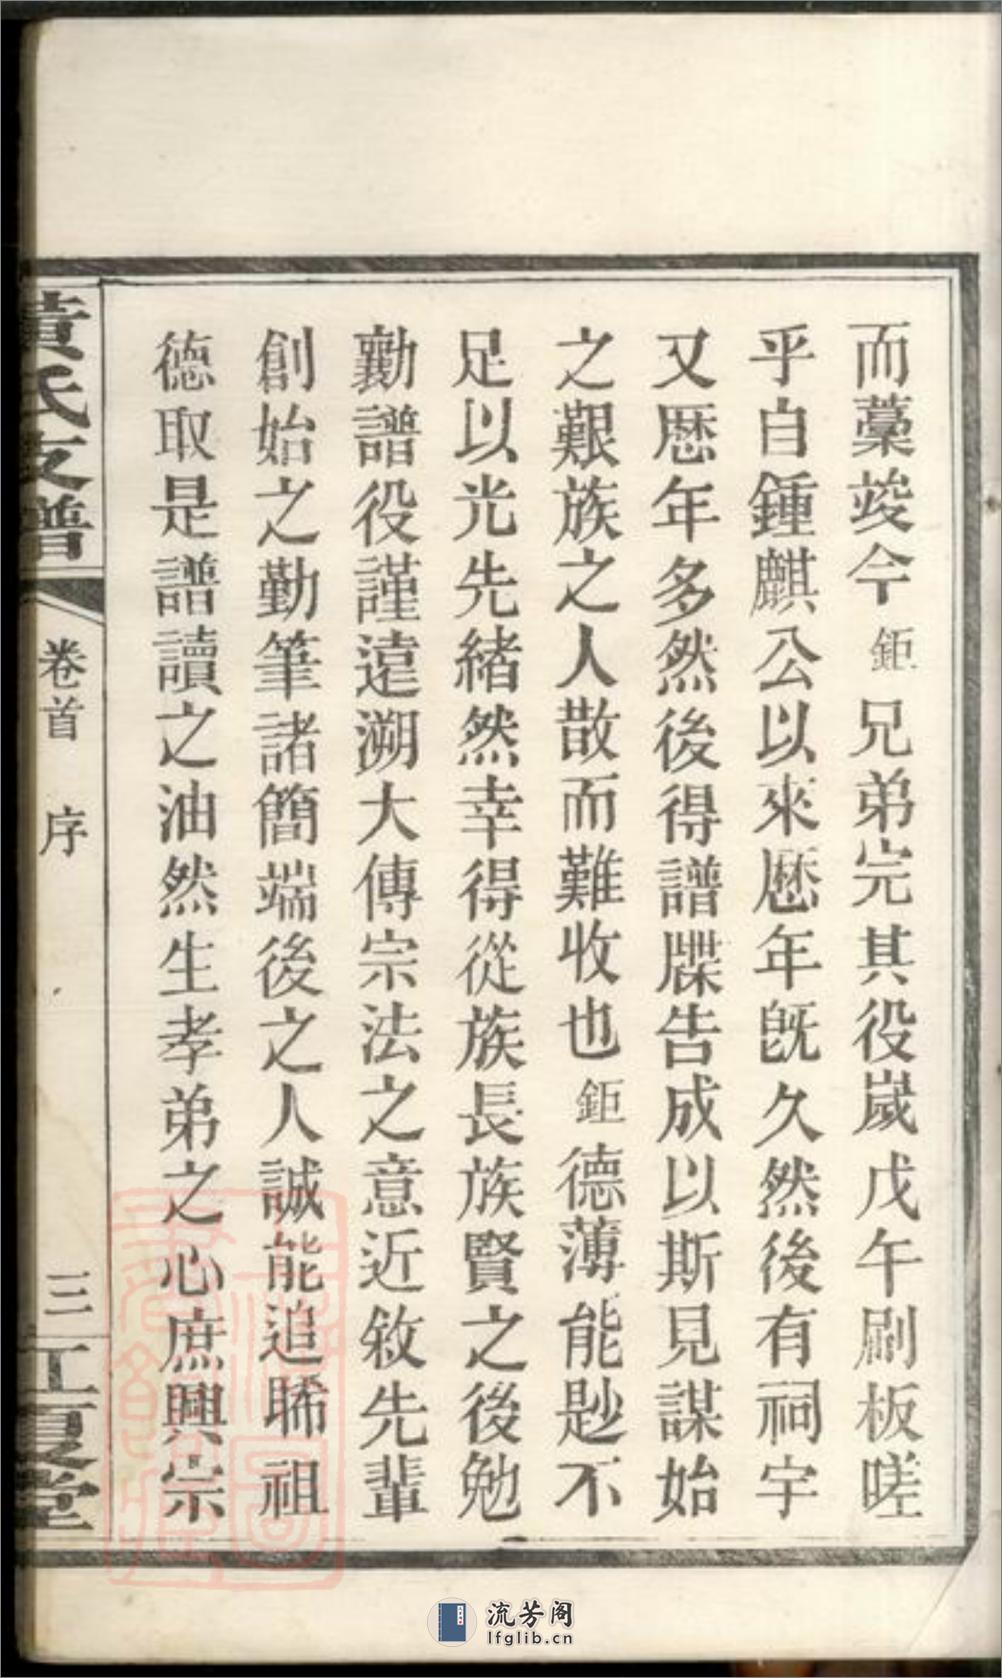 而藁竣今鉅兄弟完其役嵗戊午刷板嗟
乎自鍾麒公以來厯年旣久然後有祠宇
又厯年多然後得譜牒告成以斯見謀始
之艱族之人散而難收也鉅德薄能尟不
足以光先緒然幸得從族長族賢之後勉
勷譜役謹遠溯大傳宗法之意近敘先輩
創始之勤筆諸簡端後之人誠能追睎祖
德取是譜讀之油然生孝弟之心庶興宗
黃氏支譜
卷首 序
三
江夏堂
流芳阁
lfglib.cn